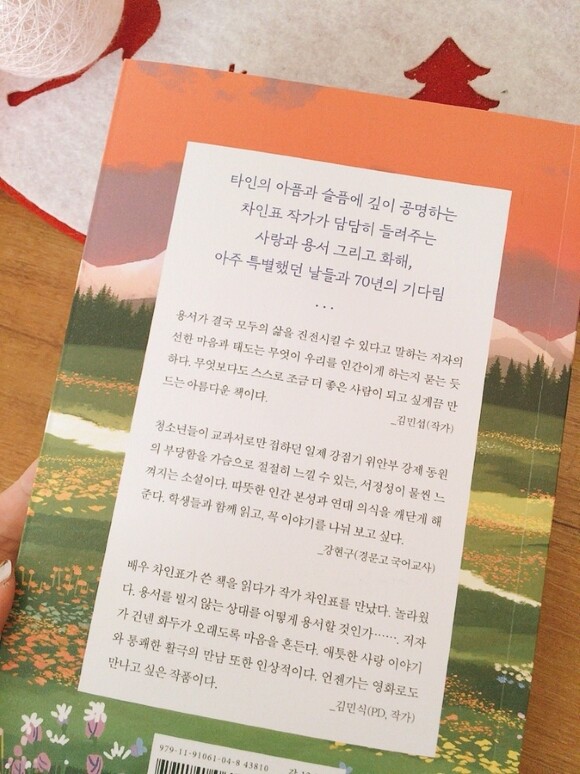 타인의 아픔과 슬픔에 깊이 공명하는
차인표 작가가 담담히 들려주는
사랑과 용서 그리고 화해,
아주 특별했던 날들과 70년의 기다림
...
용서가 결국 모두의 삶을 진전시킬 수 있다고 말하는 저자의
선한 마음과 태도는 무엇이 우리를 인간이게 하는지 묻는 듯
하다. 무엇보다도 스스로 조금 더 좋은 사람이 되고 싶게끔 만
드는 아름다운 책이다.
_김민섭(작가)
청소년들이 교과서로만 접하던 일제 강점기 위안부 강제 동원
의 부당함을 가슴으로 절절히 느낄 수 있는, 서정성이 물씬 느
껴지는 소설이다. 따뜻한 인간 본성과 연대 의식을 깨닫게 해
준다. 학생들과 함께 읽고, 꼭 이야기를 나눠 보고 싶다.
_강현구(경문고 국어교사)
배우 차인표가 쓴 책을 읽다가 작가 차인표를 만났다. 놀라웠
다. 용서를 빌지 않는 상대를 어떻게 용서할 것인가……. 저자
가 건넨 화두가 오래도록 마음을 흔든다. 애틋한 사랑 이야기
와 통쾌한 활극의 만남 또한 인상적이다. 언젠가는 영화로도
만나고 싶은 작품이다.
_김민식(PD, 작가)
979-11-91061-04-8 43810